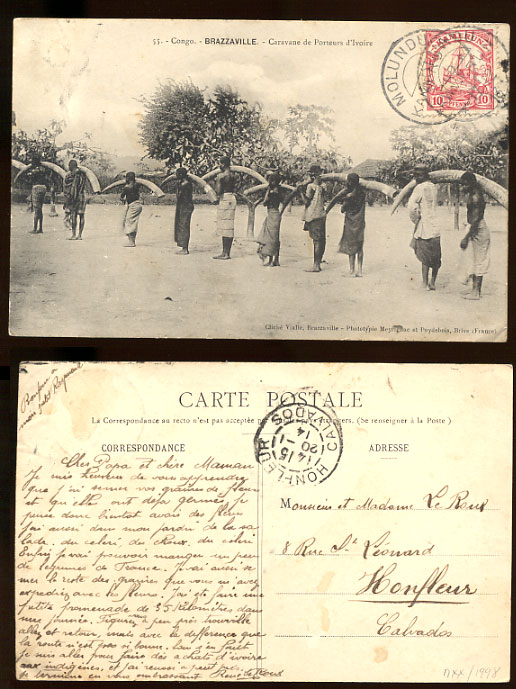 55. - Congo. - BRAZZAVILLE. - Caravane de Porteurs d'Ivoire
KAMERUN
10 PFENNIG 10
MOLUNDU
Cliché Vialle, Brazzaville - Phototypie Meyrignac et Puydebois, Brive (France)
CARTE POSTALE
La Correspondance au recto n'est pas acceptée par étrangers. (Se renseigner à la Poste)
CORRESPONDANCE
ADRESSE
HONFLEUR
CALVADOS
14 15
20 - 1
14
Cher Papa et chère Maman
Je suis heureux de vous apprendre
que j'ai semer vos graines de fleurs
et qu'elles ont déjà germées, je
puis donc bientôt avoir des fleurs
j'ai aussi dans mon jardin de la sa
lade, du céleri, du choux, du céleri
Enfin je vais pouvoir manger un peu
de légumes de France. J'avais aussi se
mer le reste des graines que vous m'avez
expédiez avec les fleurs. J'ai été faire une
petite promenade de 35 Kilomètres dans
une journée. Figurez à peu près
aller et retour, mais avec la différence que
la route n'est pas si bonne.
je suis aller pour faire des achats d'ivoire
aux indigènes, et j'ai réussi à
je termine en vous embrassant
Monsieur et Madame Le Roux
8 Rue St Léonard
Honfleur
Calvados